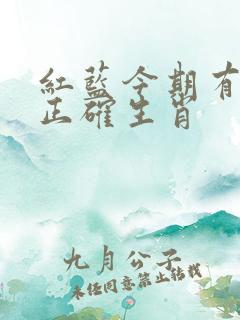 紅藍今期有
正確生肖
九月公子
未经同意禁止转载